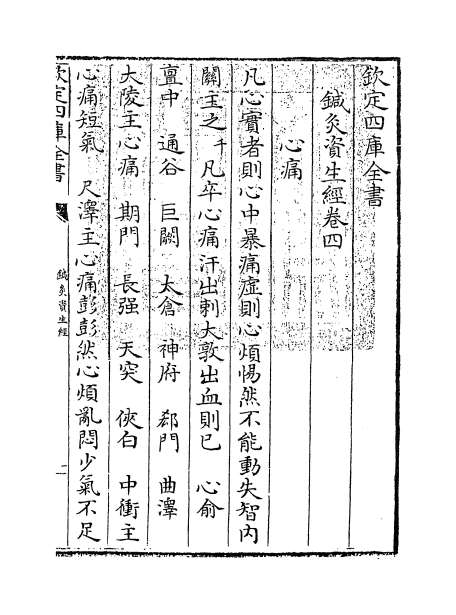 欽定四庫全書
鍼灸資生經卷四
心痛
凡心實者則心中暴痛虛則心煩惕然不能動失智内
關主之千 凡卒心痛汗出刺大敦出血則已 心俞
亶中 通谷 巨闕 太倉 神府 郄門 曲澤
大陵主心痛 期門 長强 天突 俠白 中衝主
心痛短氣 尺澤主心痛彭彭然心煩亂悶少氣不足
欽定四庫全書
鍼灸資生經